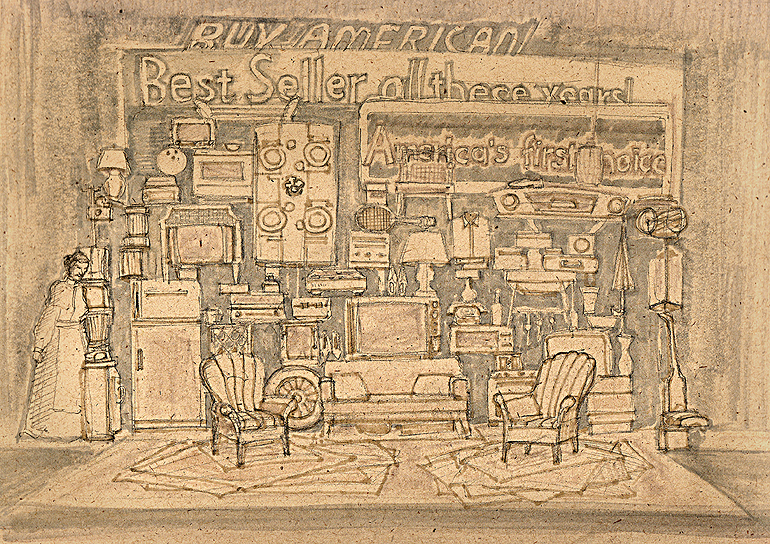 BUY AMERICAN!
Best Seller all these years!
America's first choice